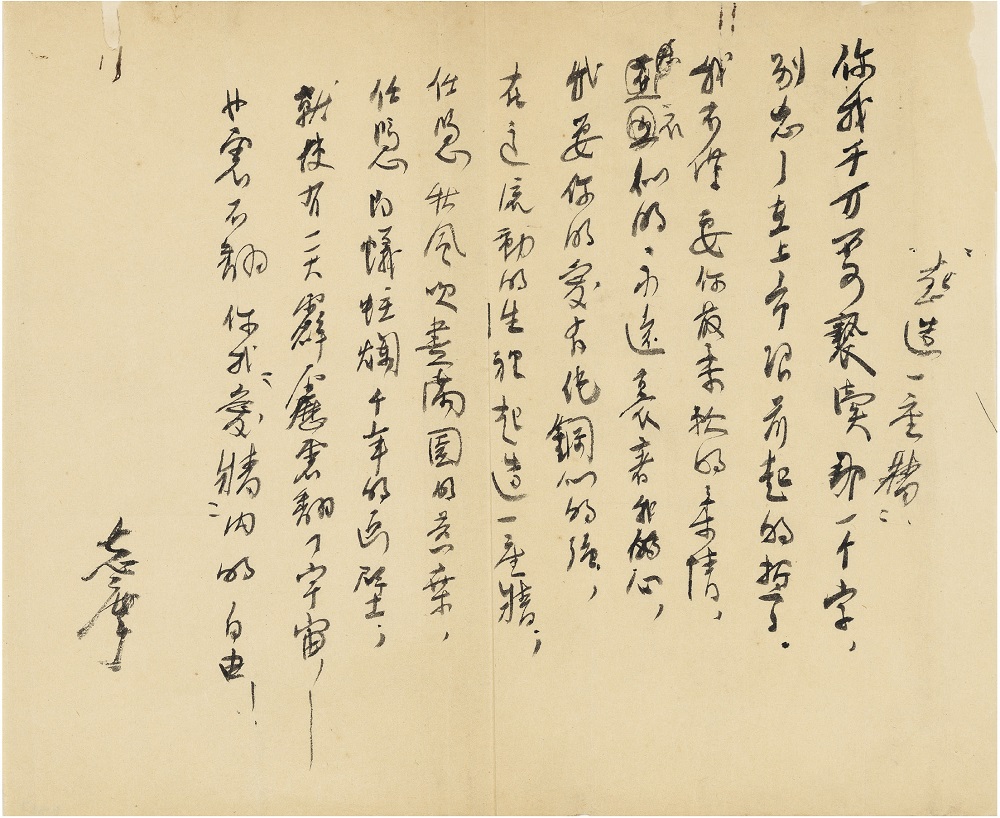 “起造一座牆”
你我千万不可褻瀆那一个字，
别忘了在上帝跟前起的誓。
我不僅要你最柔軟的柔情，
蕉衣似的，永遠裹着我的心，
我要你的愛有純鋼似的強，
在這流動的生裡起造一座牆；
任憑秋風吹盡滿園的黃葉，
任憑白蟻蛀爛千年的画壁；
就使有一天霹靂震翻了宇宙，—
也震不翻你我“愛牆”內的自由！
志摩